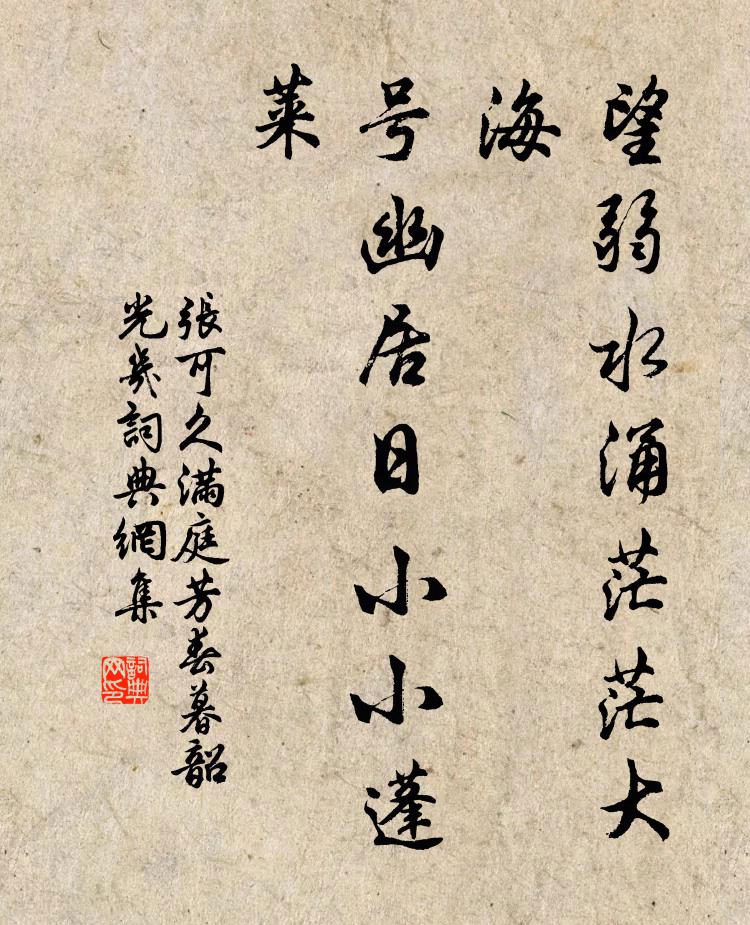 望弱水涌茫茫大
海
号幽居日小小蓬
莱
張可久满庭芳春暮韶
光幾詞典網集
詞典
网印